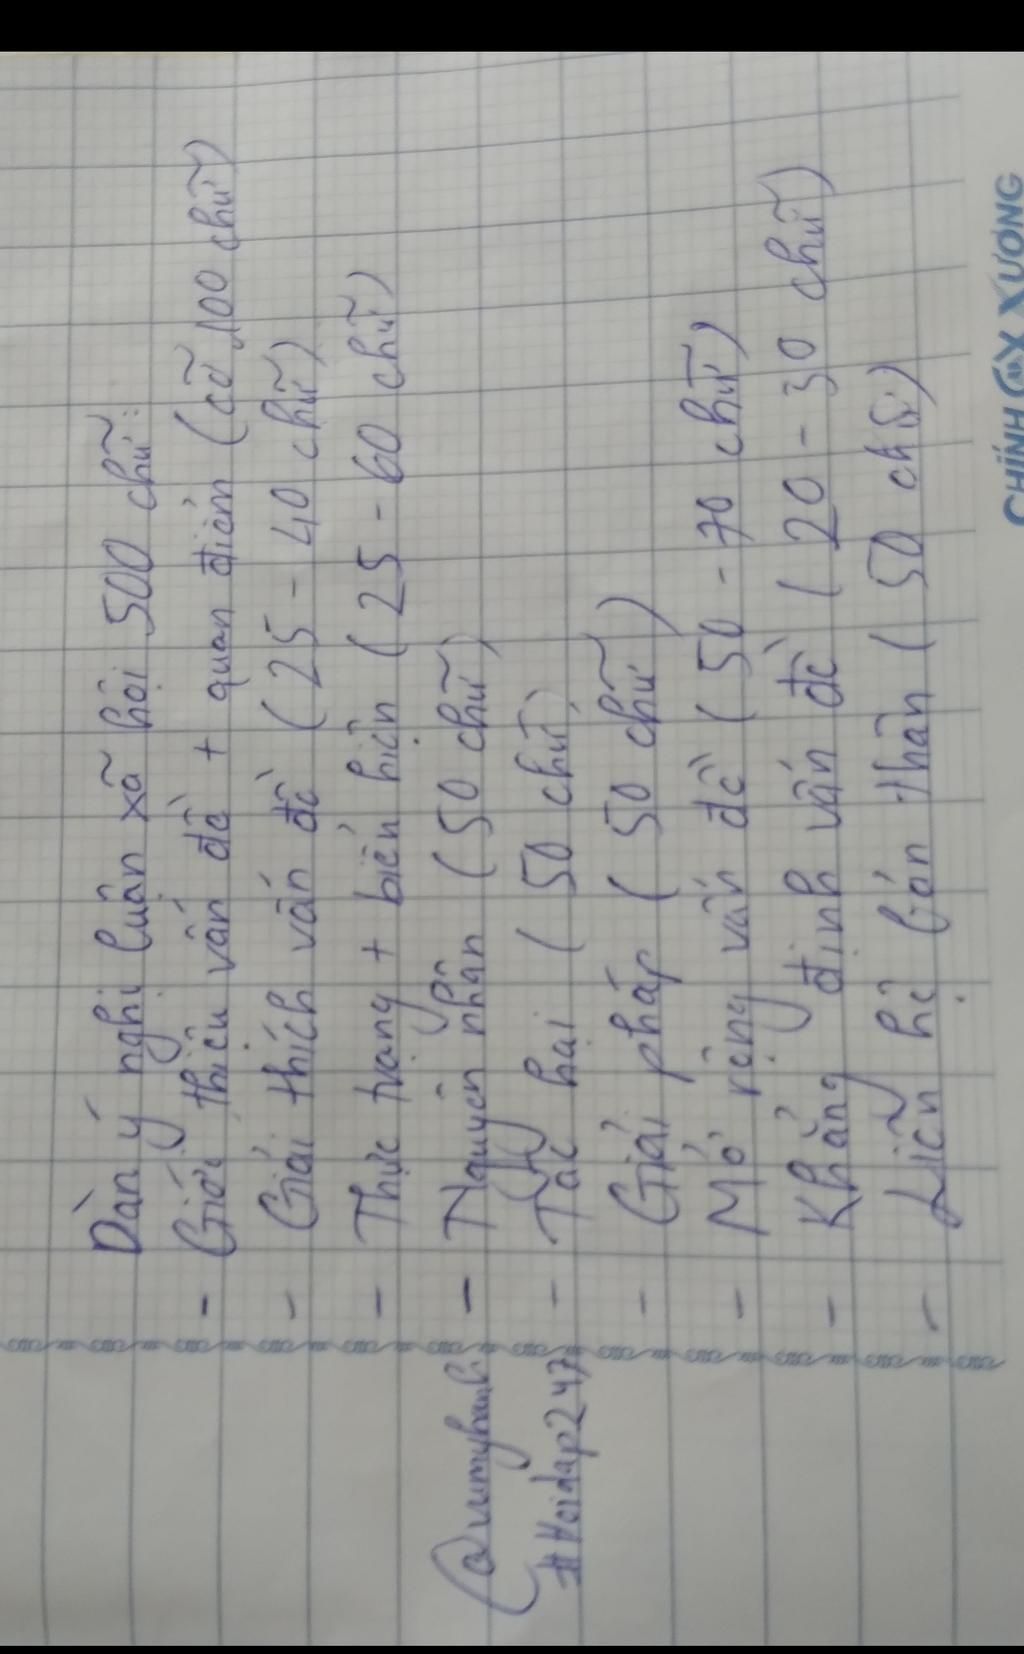 Dàn ý nghị luận xã hội 500 chữ:
- Giới thiệu vấn đề + quan điểm (cỡ 100 chữ)
- Giải thích vấn đề (25 - 40 chữ)
- Thực trạng + biểu hiện (25 - 60 chữ)
- Nguyên nhân (50 chữ)
- Tác hại (50 chữ)
- Giải pháp (50 chữ)
- Mở rộng vấn đề (50 - 70 chữ)
- Khẳng định vấn đề (20 - 30 chữ)
- Liên hệ bản thân (50 chữ)
#Hoidap247
CHÍNH XƯƠNG